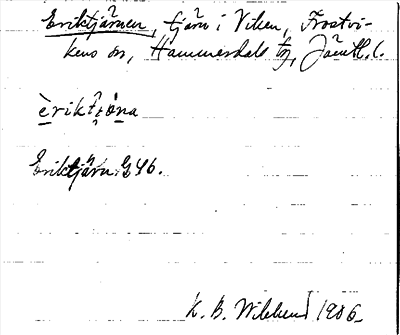 Eriktjärnen, tjärn i Viken, Frostvi-
kens sn, Hammerdals tg, Jämtl. l.
èriktjòna
Eriktjärn G46.
K. B. Wiklund 1906